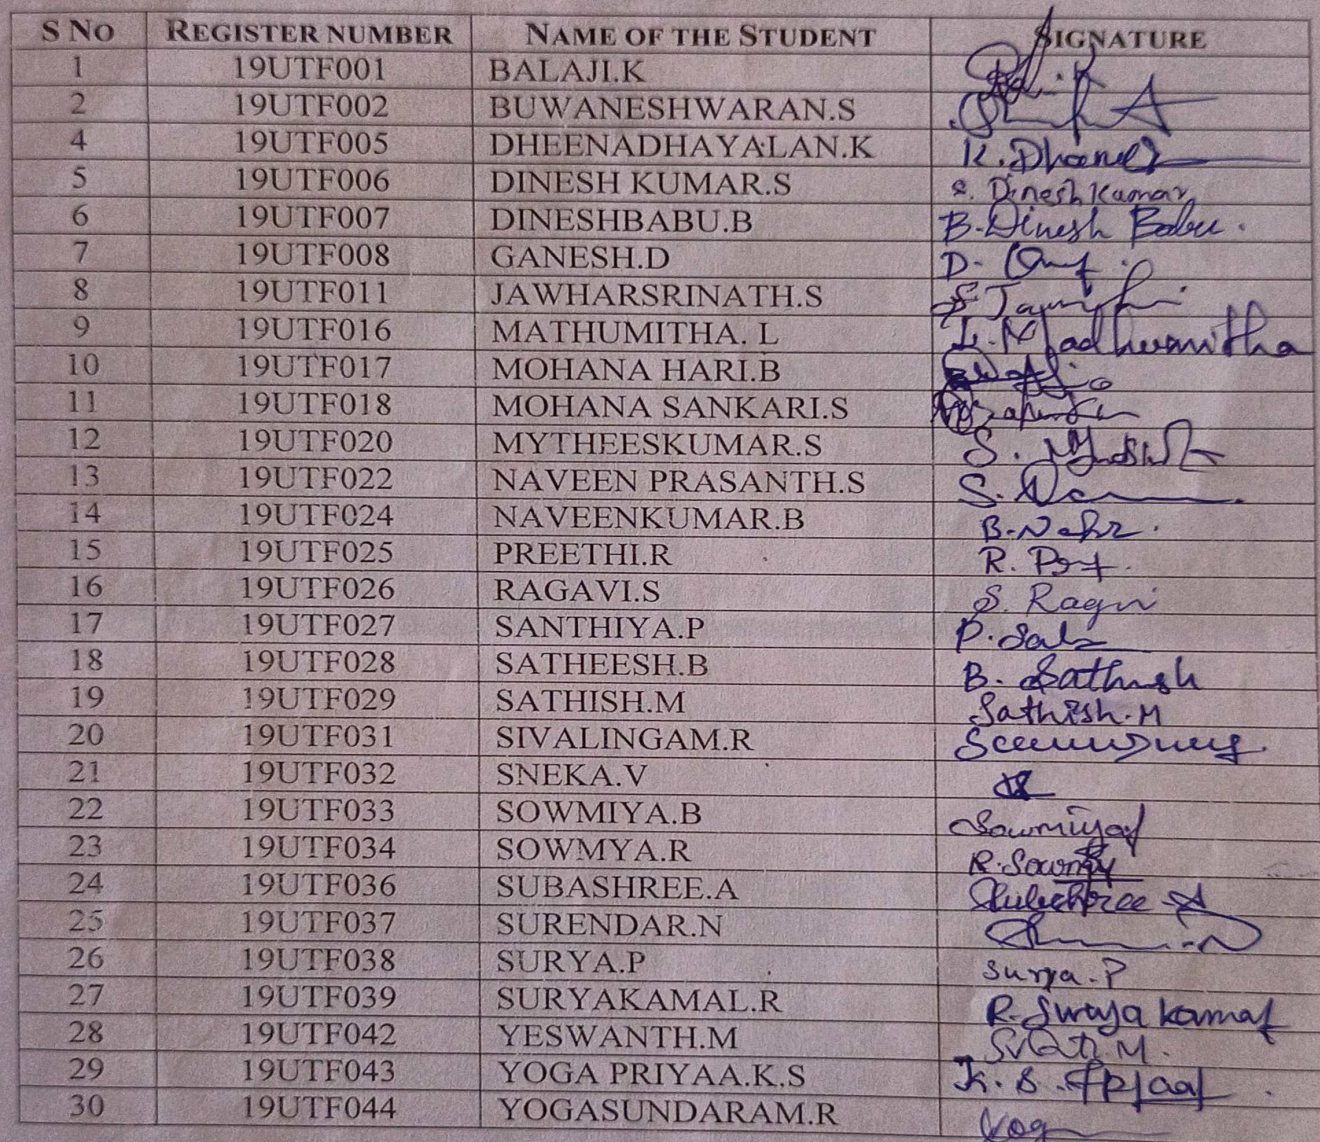 S NO REGISTER NUMBER NAME OF THE STUDENT SIGNATURE
1 19UTF001 BALAJI.K
2 19UTF002 BUWANESHWARAN.S
4 19UTF005 DHEENADHAYALAN.K K.
5 19UTF006 DINESH KUMAR.S S. Dinesh Kumar
6 19UTF007 DINESHBABU.B B. Dinesh Babu.
7 19UTF008 GANESH.D D.
8 19UTF011 JAWHARSRINATH.S
9 19UTF016 MATHUMITHA. L L. Madhumitha
10 19UTF017 MOHANA HARI.B
11 19UTF018 MOHANA SANKARI.S
12 19UTF020 MYTHEESKUMAR.S S.
13 19UTF022 NAVEEN PRASANTH.S S.
14 19UTF024 NAVEENKUMAR.B B.
15 19UTF025 PREETHI.R R.
16 19UTF026 RAGAVI.S S.
17 19UTF027 SANTHIYA.P P.
18 19UTF028 SATHEESH.B B. Sathish
19 19UTF029 SATHISH.M Sathish.M
20 19UTF031 SIVALINGAM.R
21 19UTF032 SNEKA.V
22 19UTF033 SOWMIYA.B
23 19UTF034 SOWMYA.R R.Sowmy
24 19UTF036 SUBASHREE.A
25 19UTF037 SURENDAR.N
26 19UTF038 SURYA.P Surya.P
27 19UTF039 SURYAKAMAL.R R. Suraya kamal
28 19UTF042 YESWANTH.M
29 19UTF043 YOGA PRIYAA.K.S K.S.
30 19UTF044 YOGASUNDARAM.R Yog